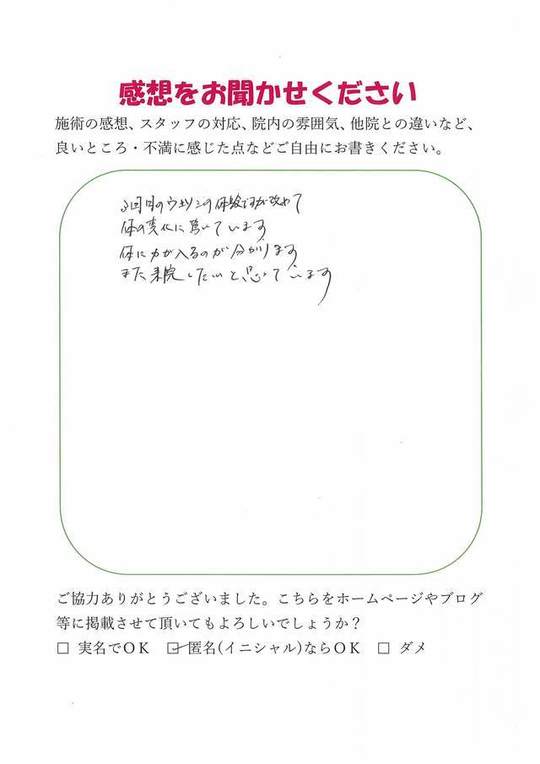 感想をお聞かせください
施術の感想、スタッフの対応、院内の雰囲気、他院との違いなど、
良いところ・不満に感じた点などご自由にお書きください。
回目の の体験ですが改めて
体の変化に驚いています
体に力が入るのが分かります
また来院したいと思っています
ご協力ありがとうございました。こちらをホームページやブログ
等に掲載させて頂いてもよろしいでしょうか？
□ 実名でOK ☑ 匿名(イニシャル)ならOK □ ダメ